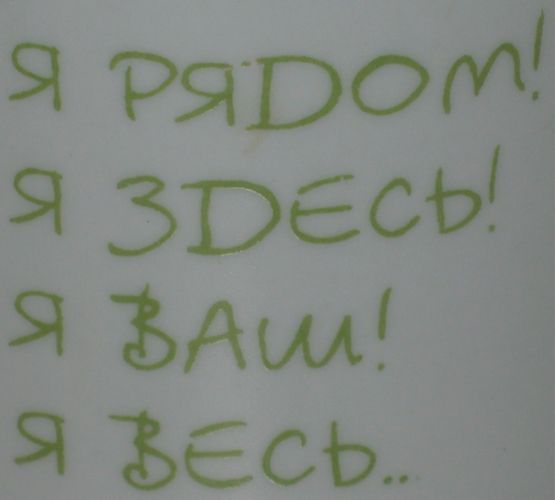 Я РЯDОМ!
Я ЗDЕСЬ!
Я ВАШ!
Я ВЕСЬ..